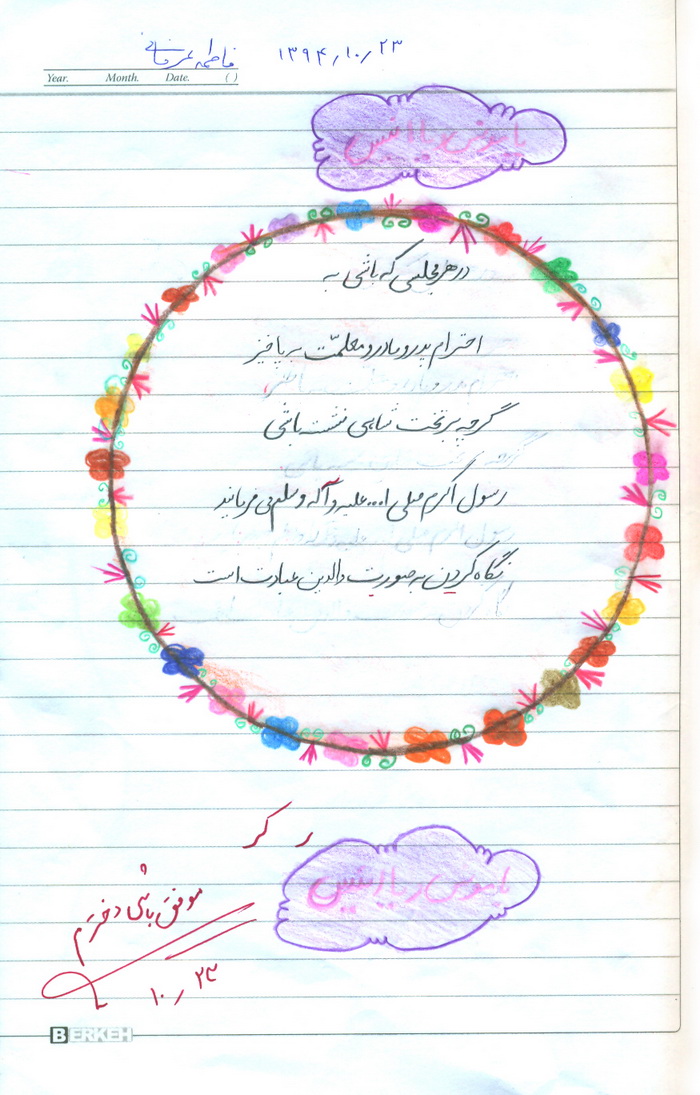 ۱۳۹۴/۱۰/۲۳ فاطمه عرفانی
Year. Month. Date. ( )
یا مونس یا انیس
در هر مجلسی که باشی به
احترام پدر و مادر و معلمت بر پا خیز
گرچه بر تخت شاهی نشسته باشی
رسول اکرم صلی ا... علیه و آله و سلم می فرمایند
نگاه کردن به صورت والدین عبادت است
یا مونس یا انیس
موفق باشی دخترم
۱۰/۲۳
BERKEH